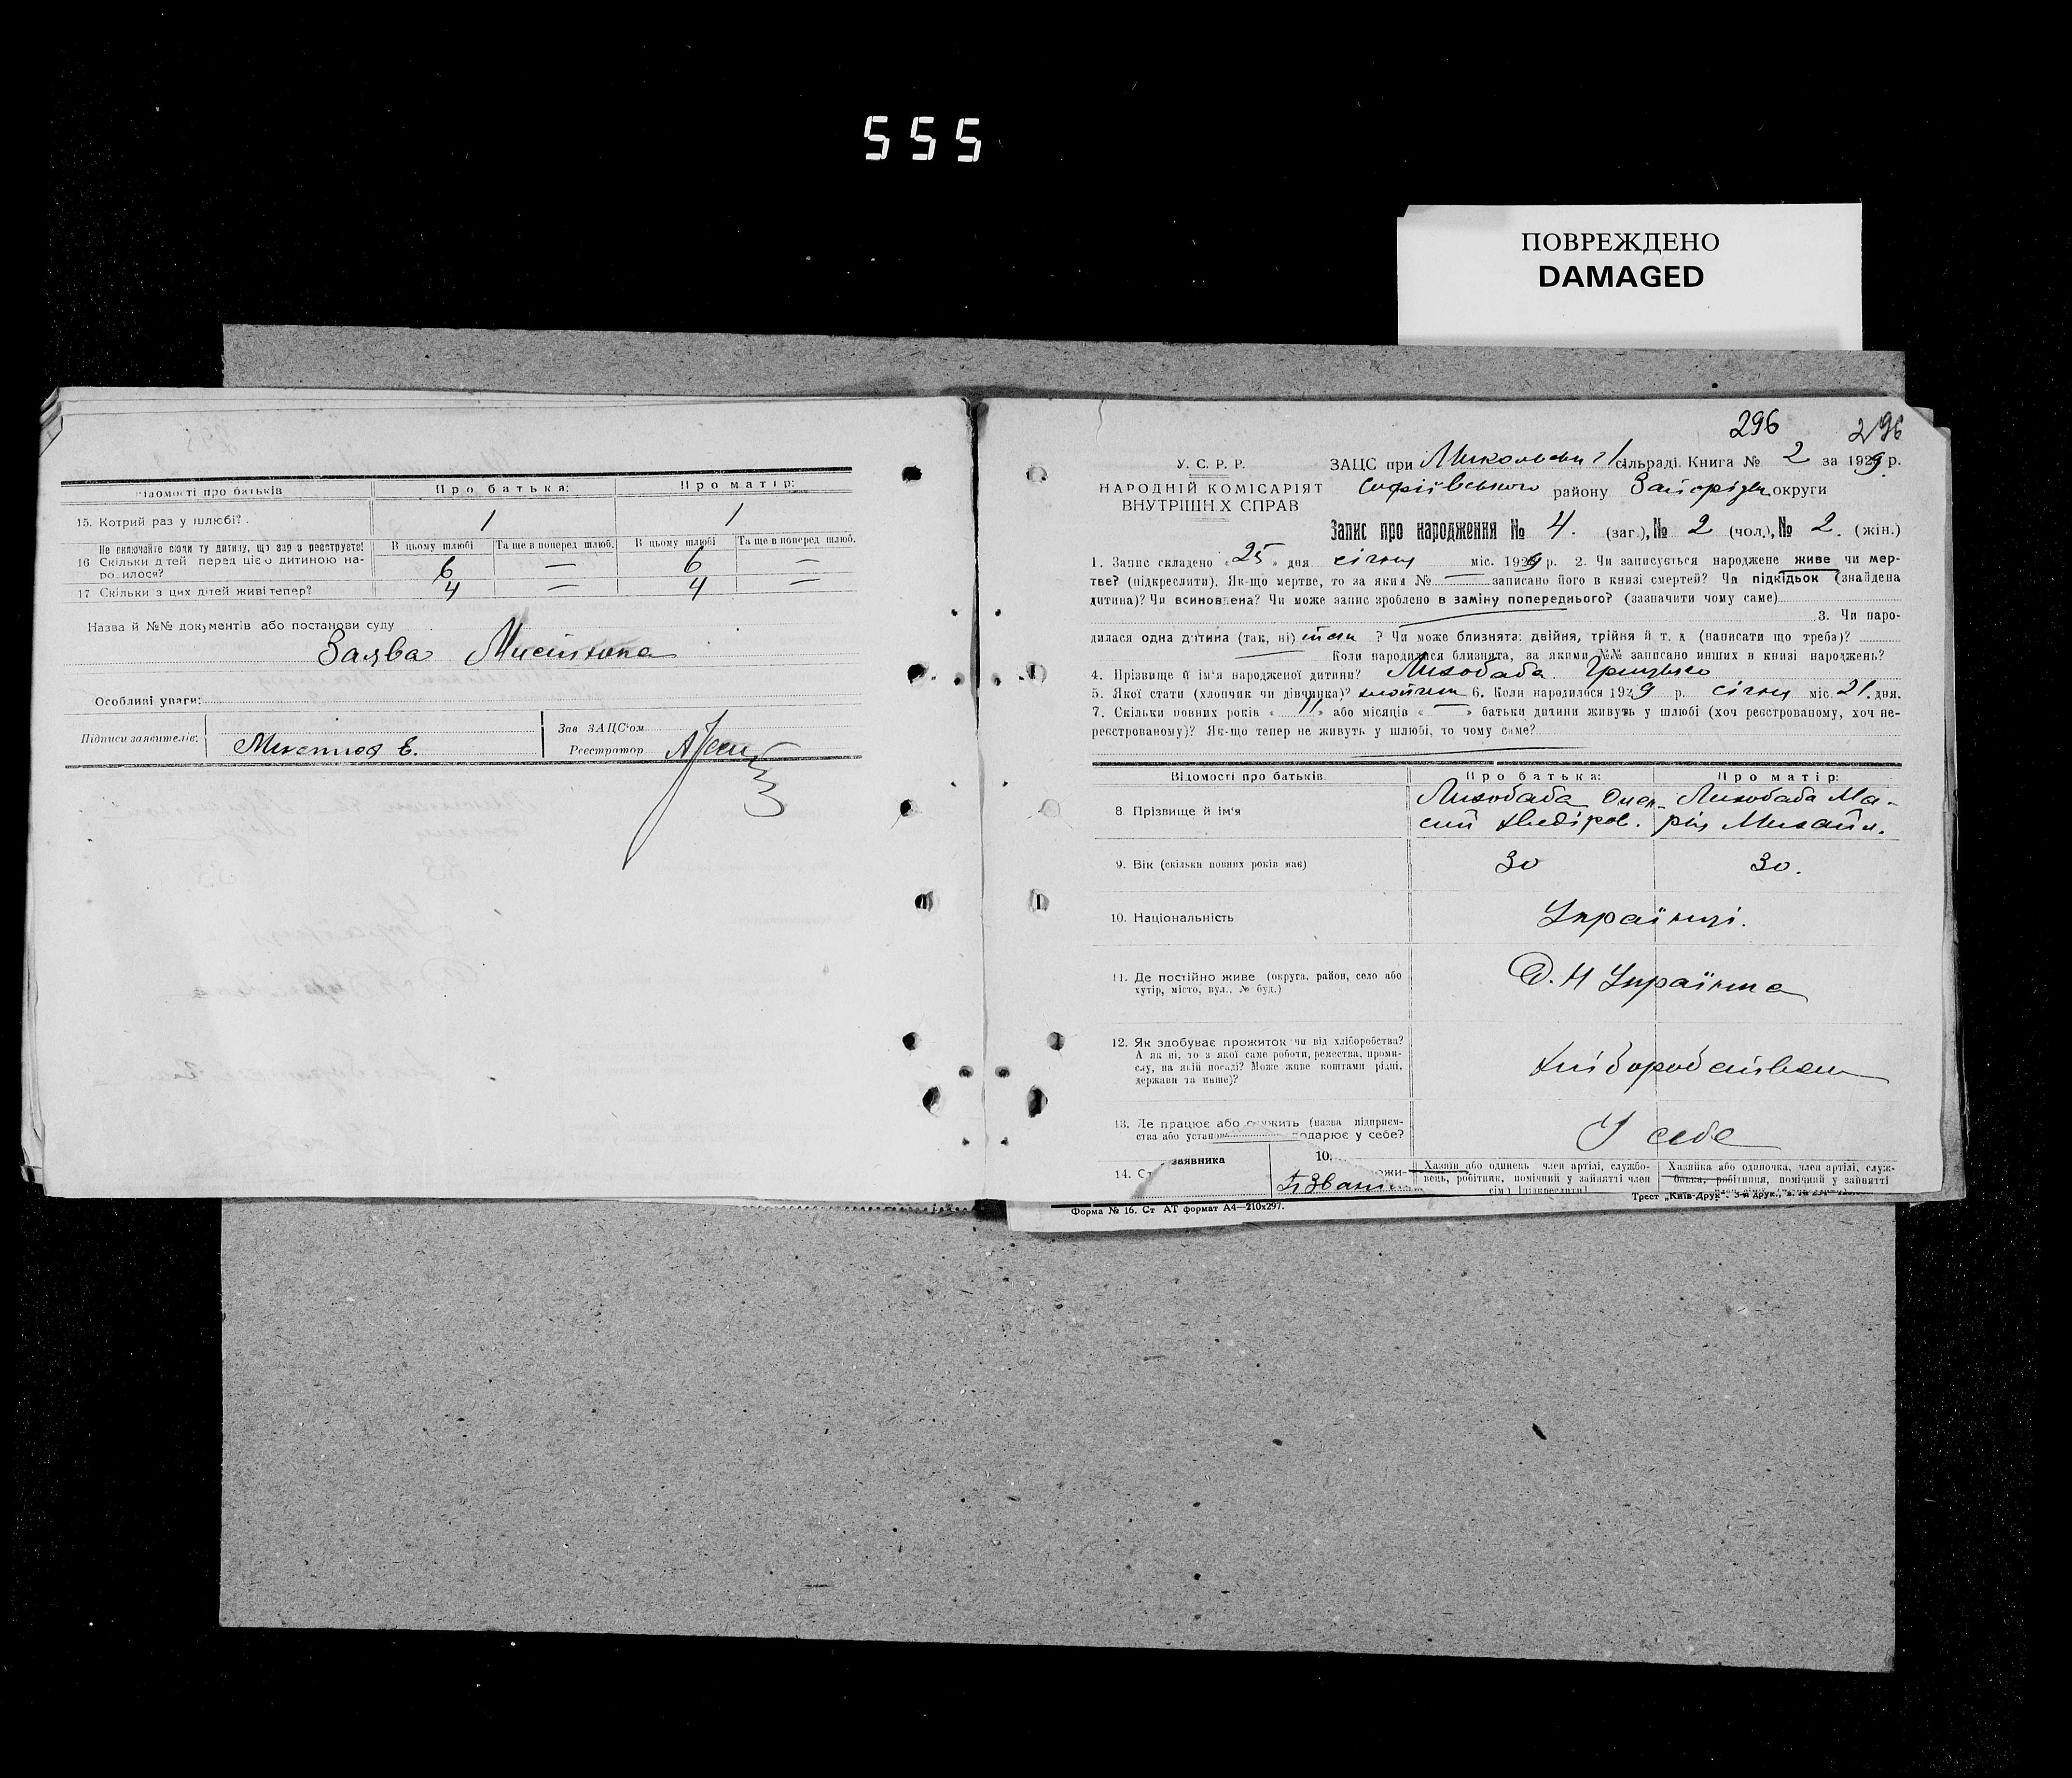 555
ПОВРЕЖДЕНО
DAMAGED
Відомості про батьків
Про батька:
Про матір:
15. Котрий раз у шлюбі?
1
1
Не включайте сюди ту дитину, що зар з реєструєте!
В цьому шлюбі
Та ще в поперед. шлюб.
В цьому шлюбі
Та ще в поперед. шлюб.
16 Скільки дітей перед цією дитиною на-
родилося?
6
—
6
—
17 Скільки з цих дітей живі тепер?
4
—
4
—
Назва й №№ документів або постанови суду
Заява
Особливі уваги:
Підписи заявителів:
Зав ЗАЦС'ом
Реєстратор
296
296
У. С. Р. Р.
НАРОДНІЙ КОМІСАРІЯТ
ВНУТРІШН.Х СПРАВ
ЗАЦС при сільраді. Книга № 2 за 1929 р.
Софіївського району Запорізьк округи
Запис про народження № 4. (заг.), № 2 (чол.), № 2. (жін.)
1. Запис складено «25» дня січня міс. 1929 р. 2. Чи записується народжене живе чи мер-
тве? (підкреслити). Як-що мертве, то за яким № — записано його в книзі смертей? Чи підкідьок (знайдена
дитина)? Чи всиновлена? Чи може запис зроблено в заміну попереднього? (зазначити чому саме)
3. Чи наро-
дилася одна дитина (так, ні) так ? Чи може близнята: двійня, трійня й т. д (написати що треба)?
Коли народилися близнята, за якими №№ записано инших в книзі народжень?
4. Прізвище й ім'я народженої дитини? Лихобаба Грицько
5. Якої стати (хлопчик чи дівчинка)? хлопчик 6. Коли народилося 1929 р. січня міс. 21. дня.
7. Скільки повних років «11» або місяців «—» батьки дитини живуть у шлюбі (хоч реєстрованому, хоч не-
реєстрованому)? Як-що тепер не живуть у шлюбі, то чому саме?
Відомості про батьків
Про батька:
Про матір:
8 Прізвище й ім'я
Лихобаба Лихобаба Ма-
рія Михайл.
9. Вік (скільки повних років має)
30
30.
10. Національність
Українці.
11. Де постійно живе (округа, район, село або
хутір, місто, вул., № буд.)
Українка
12. Як здобуває прожиток чи від хліборобства?
А як ні, то з якої саме роботи, ремества, проми-
слу, на якій посаді? Може живе коштами рідні,
держави та инше)?
хліборобством
13. Де працює або служить (назва підприєм-
ства або установ подарює у себе?
У себе
14. Ст
заявника
10.
Хазяїн або одинець член артілі, службо-
вець, робітник, помічний у зайнятті член
сім'ї (підкреслити)
Хазяйка або одиночка, член артілі, служ-
бовка, робітниця, помічний у зайнятті
Форма № 16. Ст АТ формат А4—210х297.
Трест „Київ-Друк". 3-я друк.,